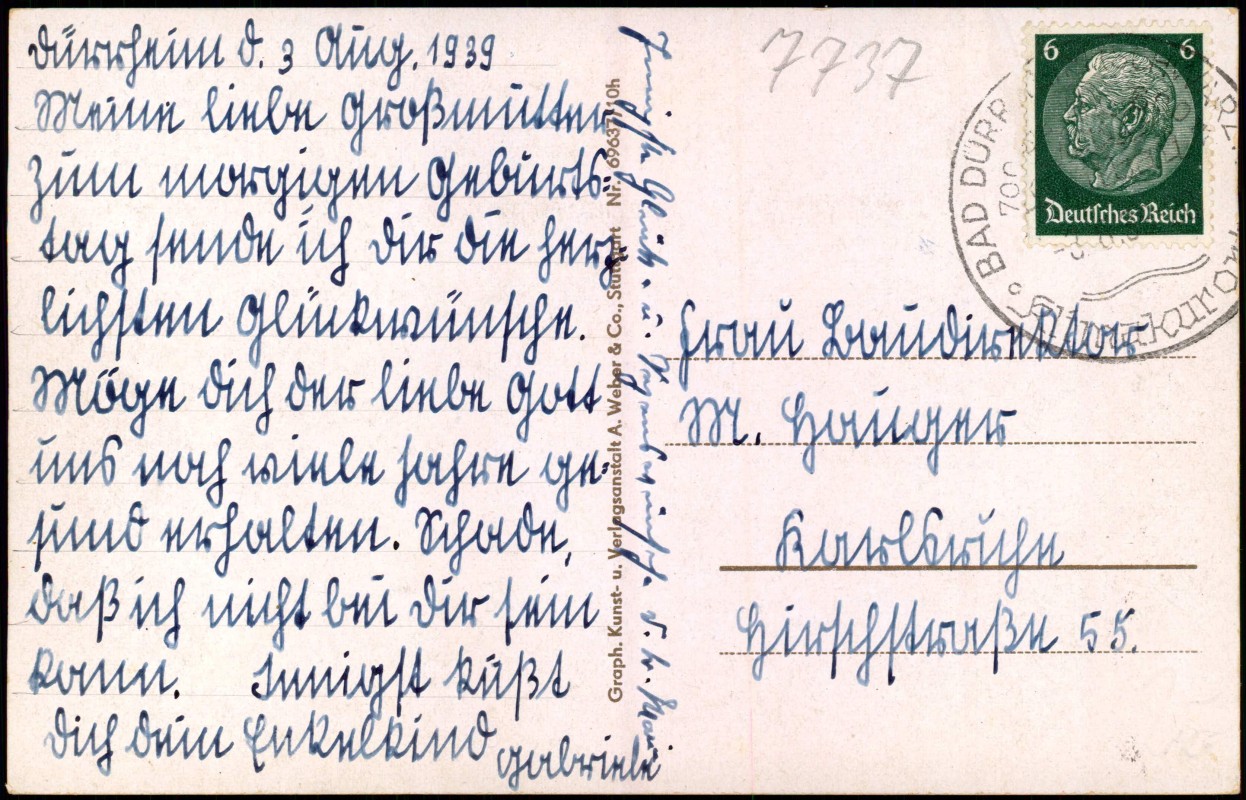 Dürrheim d. 3 Aug. 1939
Meine liebe Großmutter
zum morgigen Geburts=
tag sende ich dir die herz=
lichsten Glückwünsche.
Möge dich der liebe Gott
uns noch viele Jahre ge=
sund erhalten. Schade,
daß ich nicht bei dir sein
kann. Innigst küßt
dich dein Enkelkind
Gabriele
Innigste Glück. u.
Graph. Kunst- u. Verlagsanstalt A. Weber & Co., Stuttgart Nr. 69637/110h
7737
6 6
Deutsches Reich
BAD DÜRR
700
Frau Baudirektor
M. Hauger
Karlsruhe
Hirschstraße 55.